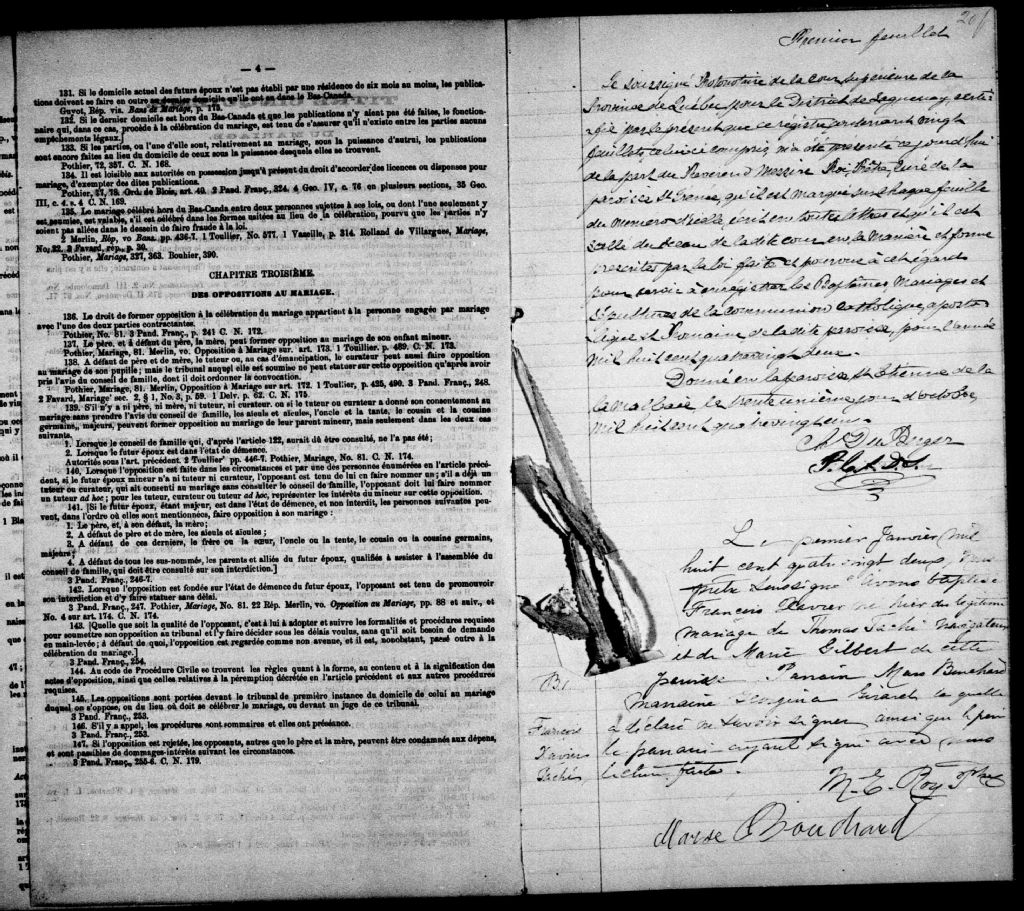 — 4 —
131. Si le domicile actuel des futurs époux n'est pas établi par une résidence de six mois au moins, les publica-
tions doivent se faire en outre au dernier domicile qu'ils ont eu dans le Bas-Canada.
Guyot, Rép. vis. Bans de Mariage, p. 173.
132. Si le dernier domicile est hors du Bas-Canada et que les publications n'y aient pas été faites, le fonction-
naire qui, dans ce cas, procède à la célébration du mariage, est tenu de s'assurer qu'il n'existe entre les parties aucuns
empêchements légaux.]
133. Si les parties, ou l'une d'elle sont, relativement au mariage, sous la puissance d'autrui, les publications
sont encore faites au lieu du domicile de ceux sous la puissance desquels elles se trouvent.
Pothier, 72, 357. C. N. 168.
134. Il est loisible aux autorités en possession jusqu'à présent du droit d'accorder des licences ou dispenses pour
mariage, d'exempter des dites publications.
Pothier, 77, 78. Ord. de Blois, art. 40. 2 Pand. Franç., 324. 4 Geo. IV, c. 76 en plusieurs sections, 35 Geo.
III, c. 4. s. 4 C. N. 169.
135. Le mariage célébré hors du Bas-Canada entre deux personnes sujettes à ses lois, ou dont l'une seulement y
est soumise, est valable, s'il est célébré dans les formes usitées au lieu de la célébration, pourvu que les parties n'y
soient pas allées dans le dessein de faire fraude à la loi.
2 Merlin, Rép, vo Bans. pp. 436-7. 1 Toullier, No. 577. 1 Vazeille, p. 314. Rolland de Villargues, Mariage,
No. 22. 3 Favard, rép., p. 30.
Pothier, Mariage, 327, 363. Bouhier, 390.
CHAPITRE TROISIÈME.
DES OPPOSITIONS AU MARIAGE.
136. Le droit de former opposition à la célébration du mariage appartient à la personne engagée par mariage
avec l'une des deux parties contractantes.
Pothier, No. 81. 3 Pand. Franç., p. 241 C. N. 172.
137. Le père, et à défaut du père, la mère, peut former opposition au mariage de son enfant mineur.
Pothier, Mariage, 81. Merlin, vo. Opposition à Mariage sur. art. 173. 1 Touillier, p. 489. C. N. 173.
138. A défaut de père et de mère, le tuteur ou, au cas d'émancipation, le curateur peut aussi faire opposition
au mariage de son pupille; mais le tribunal auquel elle est soumise ne peut statuer sur cette opposition qu'après avoir
pris l'avis du conseil de famille, dont il doit ordonner la convocation.
Pothier, Mariage, 81. Merlin, Opposition à Mariage sur art. 172. 1 Toullier, p. 425, 490. 3 Pand. Franç., 248.
2 Favard, Mariage' sec. 2, § 1, No. 3, p. 59. 1 Delv. p. 62. C. N. 175.
139. S'il n'y a ni père, ni mère, ni tuteur, ni curateur, ou si le tuteur ou curateur a donné son consentement au
mariage sans prendre l'avis du conseil de famille, les aïeuls et aïeules, l'oncle et la tante, le cousin et la cousine
germains, majeurs, peuvent former opposition au mariage de leur parent mineur, mais seulement dans les deux cas
suivants.
1. Lorsque le conseil de famille qui, d'après l'article 122, aurait dû être consulté, ne l'a pas été;
2. Lorsque le futur époux est dans l'état de démence.
Autorités sous l'art. précédent. 2 Toullier' pp. 446-7. Pothier, Mariage, No. 81. C. N. 174.
140. Lorsque l'opposition est faite dans les circonstances et par une des personnes énumérées en l'article précé-
dent, si le futur époux mineur n'a ni tuteur ni curateur, l'opposant est tenu de lui en faire nommer un; s'il a déjà un
tuteur ou curateur, qui ait consenti au mariage sans consulter le conseil de famille, l'opposant doit lui faire nommer
un tuteur ad hoc; pour les tuteur, curateur ou tuteur ad hoc, représenter les intérêts du mineur sur cette opposition.
141. [Si le futur époux, étant majeur, est dans l'état de démence, et non interdit, les personnes suivantes peu-
vent, dans l'ordre où elles sont mentionnées, faire opposition à son mariage:
1. Le père, et, à son défaut, la mère;
2. A défaut de père et de mère, les aïeuls et aïeules;
3. A défaut de ces derniers, le frère ou la sœur, l'oncle ou la tante, le cousin ou la cousine germains,
majeurs;
4. A défaut de tous les sus-nommés, les parents et alliés du futur époux, qualifiés à assister à l'assemblée du
conseil de famille, qui doit être consulté sur son interdiction.]
3 Pand. Franç., 246-7.
142. Lorsque l'opposition est fondée sur l'état de démence du futur époux, l'opposant est tenu de promouvoir
son interdiction et d'y faire statuer sans délai.
3 Pand. Franç., 247. Pothier, Mariage, No. 81. 22 Rép. Merlin, vo. Opposition au Mariage, pp. 88 et suiv., et
No. 4 sur art. 174. C. N. 174.
143. [Quelle que soit la qualité de l'opposant, c'est à lui à adopter et suivre les formalités et procédures requises
pour soumettre son opposition au tribunal et l'y faire décider sous les délais voulus, sans qu'il soit besoin de demande
en main-levée; à défaut de quoi, l'opposition est regardée comme non avenue, et il est, nonobstant, passé outre à la
célébration du mariage.]
3 Pand. Franç., 254.
144. Au code de Procédure Civile se trouvent les règles quant à la forme, au contenu et à la signification des
actes d'opposition, ainsi que celles relatives à la péremption décrétée en l'article précédent et aux autres procédures
requises.
145. Les oppositions sont portées devant le tribunal de première instance du domicile de celui au mariage
duquel on s'oppose, ou du lieu où doit se célébrer le mariage, ou devant un juge de ce tribunal.
3 Pand. Franç., 253.
146. S'il y a appel, les procédures sont sommaires et elles ont préséance.
3 Pand. Franç., 253.
147. Si l'opposition est rejetée, les opposants, autres que le père et la mère, peuvent être condamnés aux dépens,
et sont passibles de dommages-intérêts suivant les circonstances.
3 Pand. Franç., 255-6. C. N. 179.
Premier feuillet
Le soussigné Protonotaire de la Cour Supérieure de la
Province de Québec pour le District de Saguenay, certi-
fie par le présent que ce registre contenant vingt
feuillets celui-ci compris, m'a été présenté ce jourd'hui
de la part du Révérend Messire Roi, Prêtre, Curé de la
paroisse St. , qu'il est marqué sur chaque feuillet
du numéro d'icelle, écrit en toutes lettres et qu'il est
scellé du sceau de la dite cour, en la manière et forme
prescrites par la loi faite et pourvue à cet égard
pour servir à enregistrer les Baptêmes, Mariages et
Sépultures de la communion catholique, aposto
lique et Romaine de la dite paroisse, pour l'année
mil huit cent quatrevingt deux.
Donné en la paroisse St. Etienne de la
la Malbaie, le trente unième jour d'octobre
mil huit cent quatrevingt un.
P. C. S. D. S.
Le premier Janvier mil
huit cent quatre vingt deux,
prêtre soussigné avons baptisé
François Xavier né hier du légitime
mariage de Thomas Taché navigateur
et de Marie Gilbert de cette
paroisse Parrain Marc Bouchard
Marraine Georgina Girard laquelle
a déclaré ne savoir signer ainsi que le père
le parrain ayant signé avec nous
lecture faite.
B1
François
Xavier
Taché
M. E. Roy Ptre
Bouchard